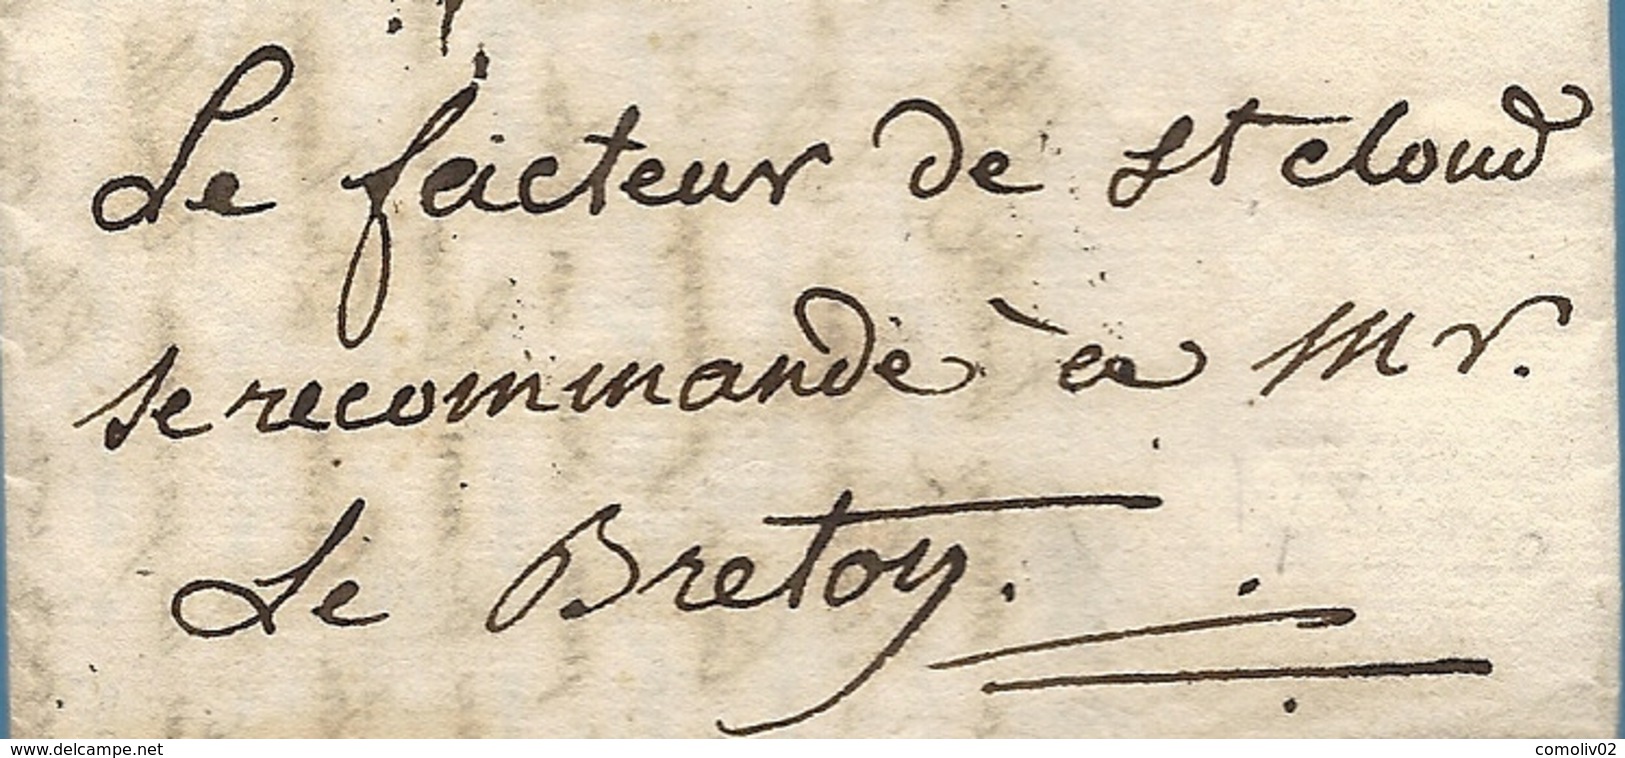 Le facteur de st cloud
se recommande à Mr.
Le Bretoy.
www.delcampe.net
comoliv02